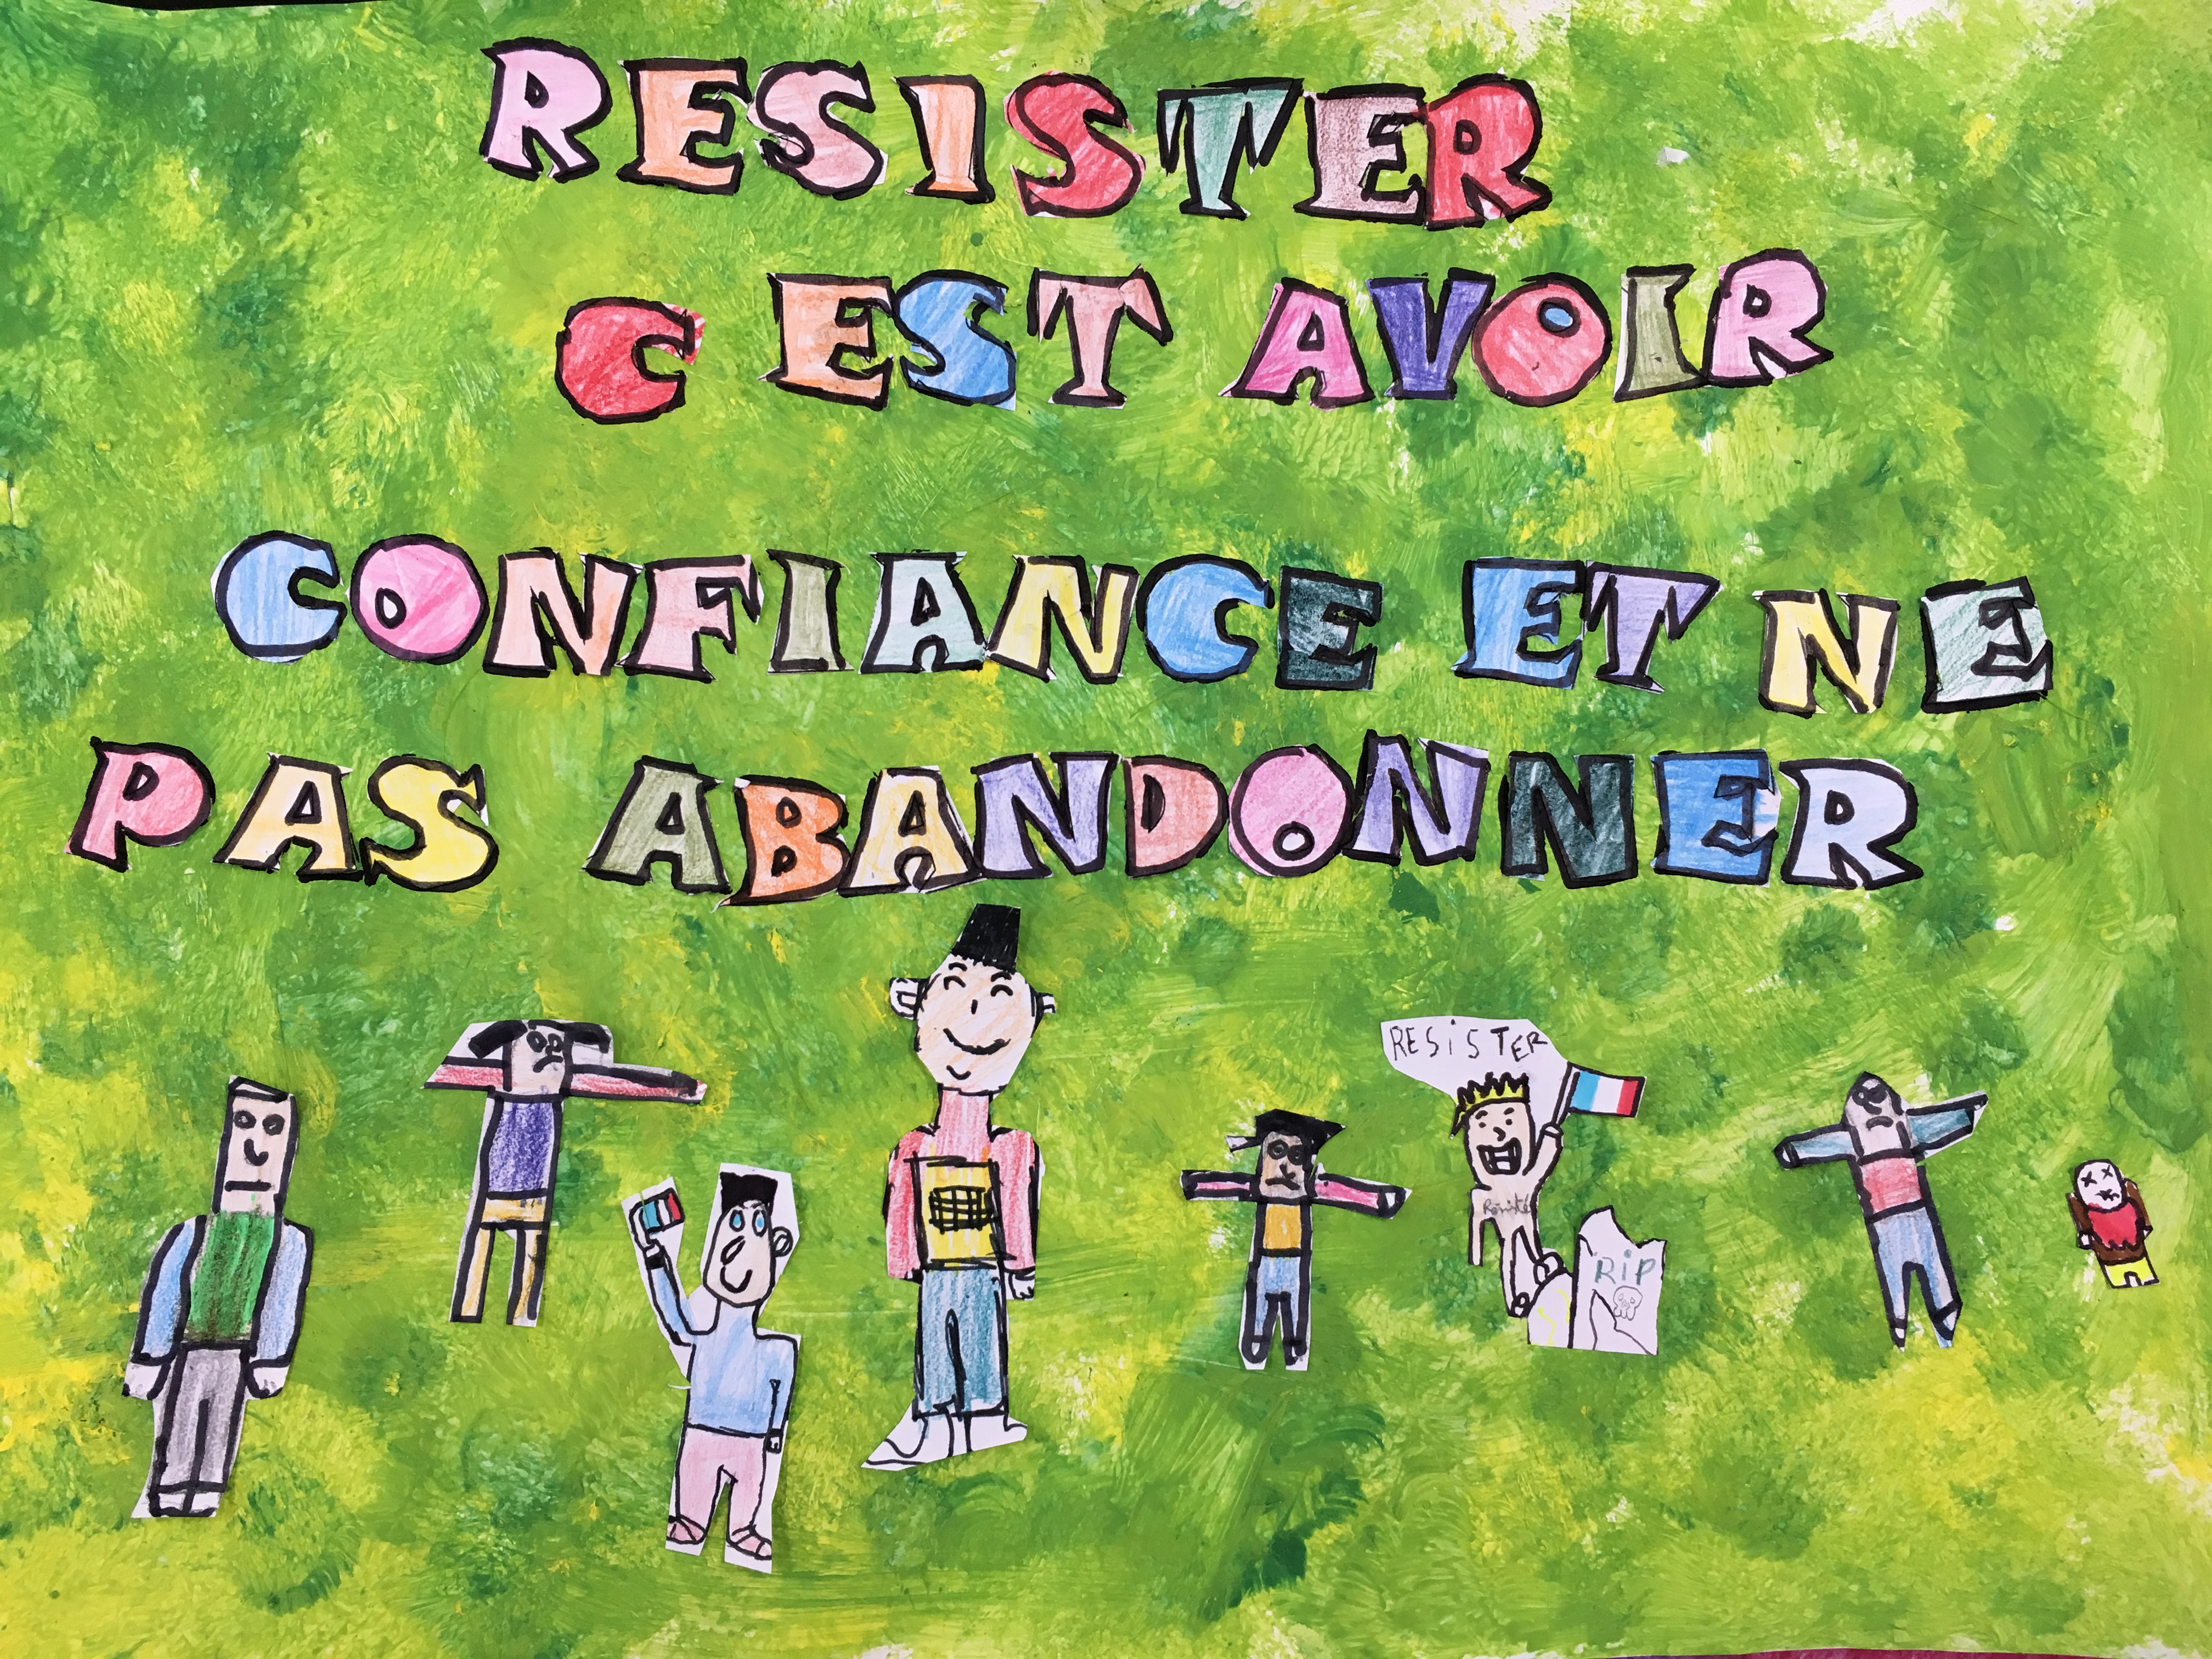 RESISTER
C EST AVOIR
CONFIANCE ET NE
PAS ABANDONNER
RESiSTER
RiP